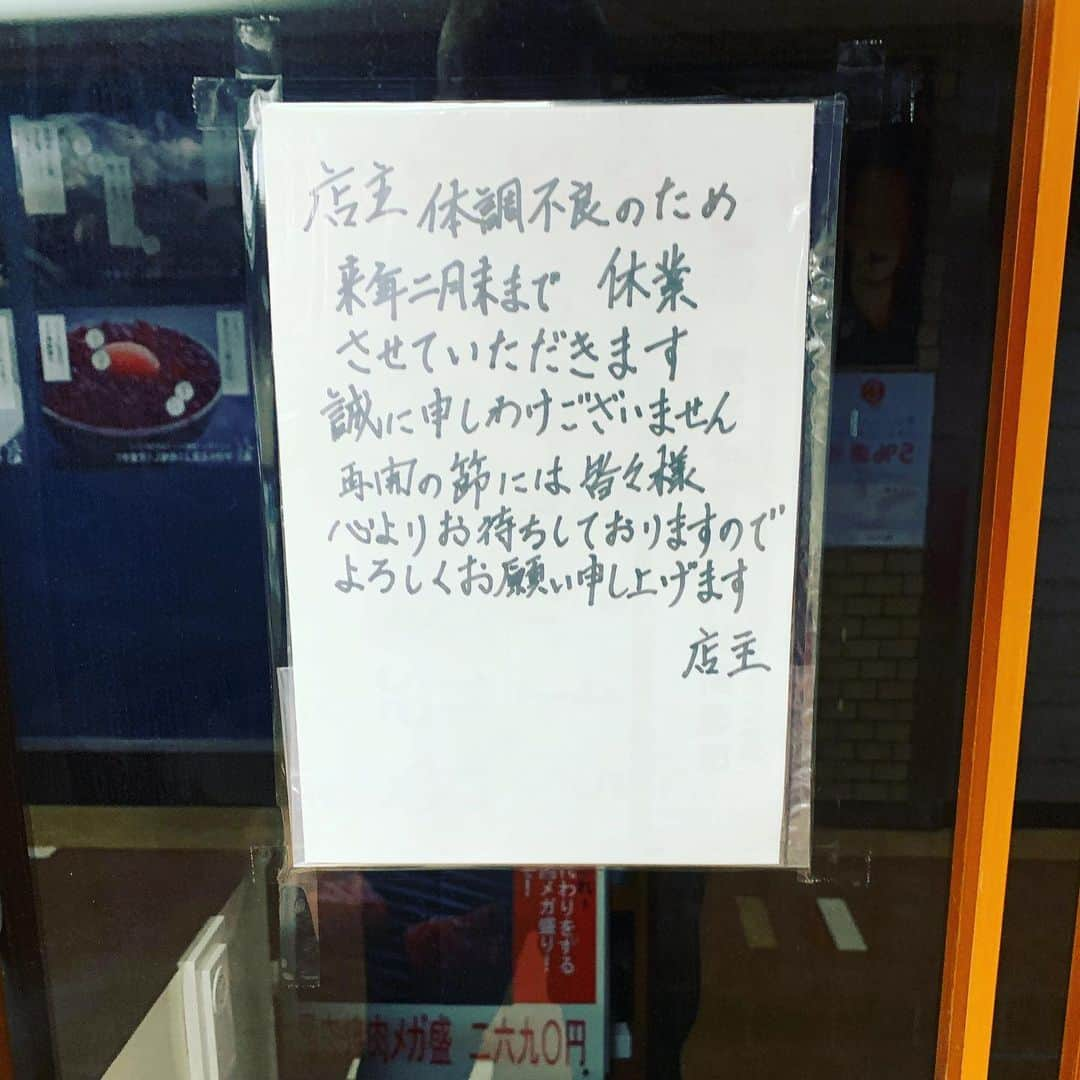 店主 体調不良のため
来年二月末まで 休業
させていただきます
誠に申しわけございません
再開の節には皆々様
心よりお待ちしておりますので
よろしくお願い申し上げます
店主
わりをする
メガ盛り!
肉メガ盛 二六九〇円